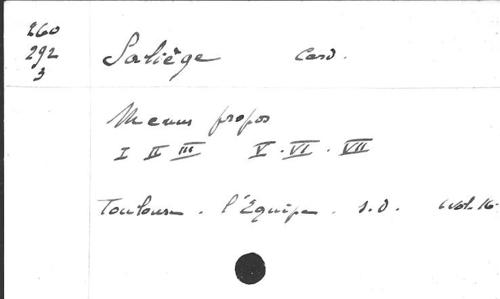 260
292
3
Saliège Card.
Menus propos
I II III V. VI. VII
Toulouse. l'Equipe. s.d. in-16